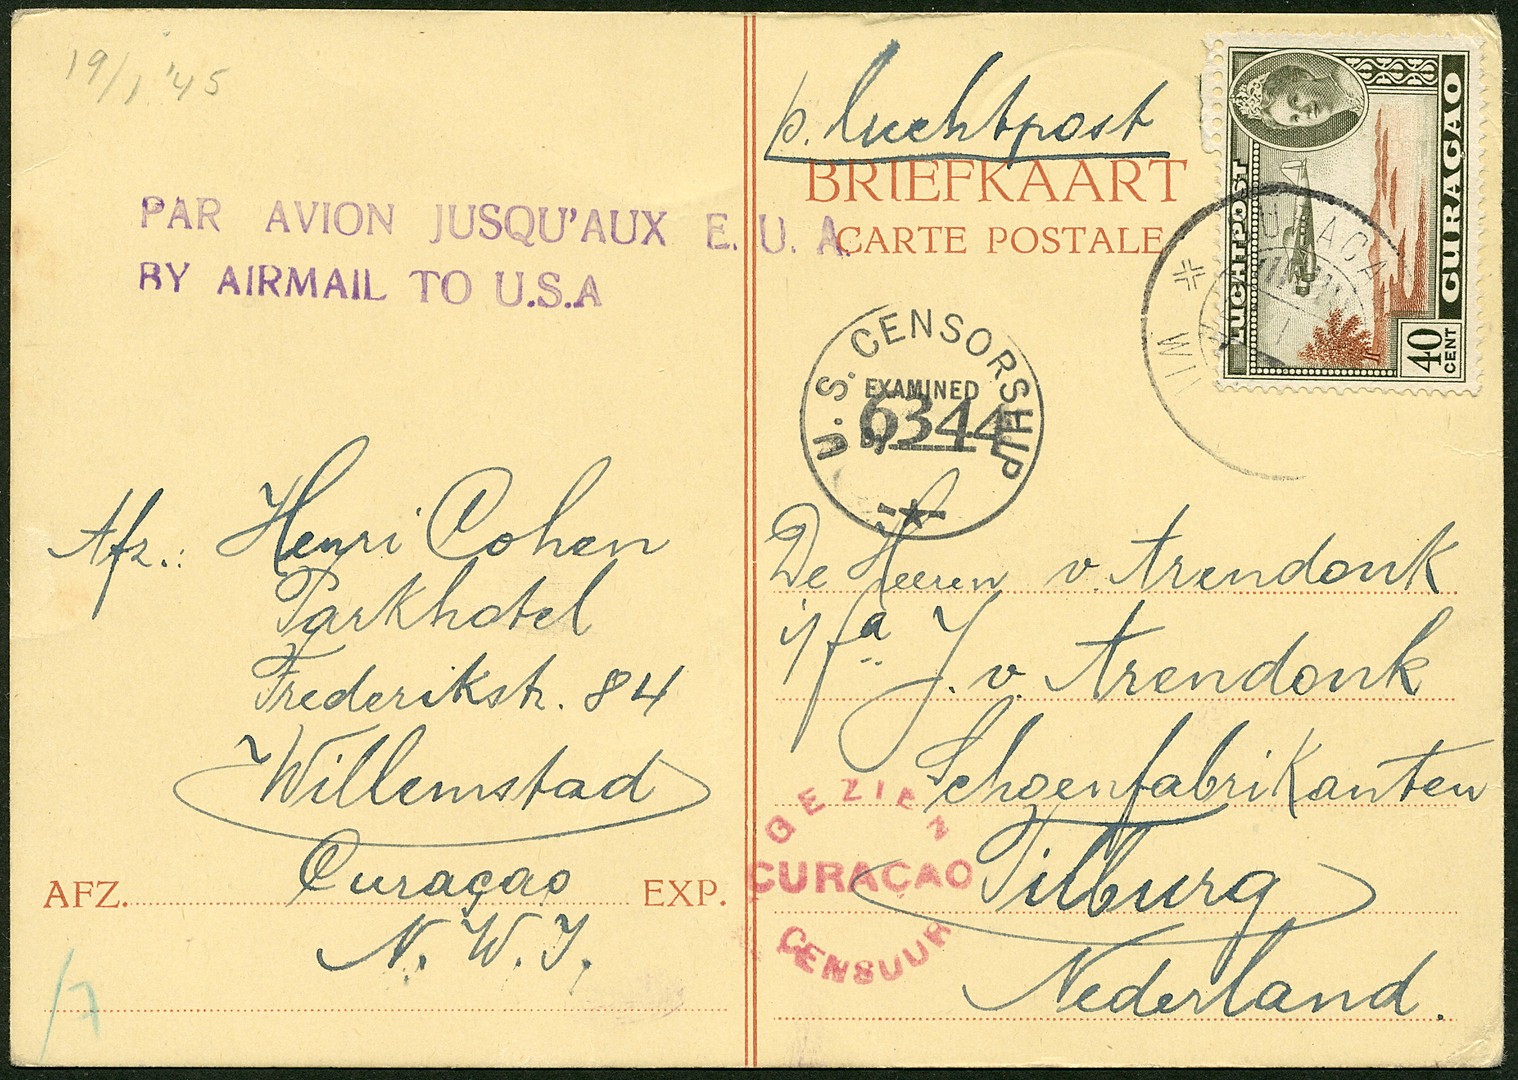 19/1 '45
PAR AVION JUSQU'AUX E.U.A.
BY AIRMAIL TO U.S.A
Afz.: Henri Cohen
Parkhotel
Frederikstr. 84
Willemstad
Curaçao
N.W.I.
AFZ. EXP.
p. luchtpost
BRIEFKAART
CARTE POSTALE
LUCHTPOST
CURAÇAO
40
CENT
U.S. CENSORSHIP
EXAMINED
BY 6344
De Heeren v. Arendonk
J. v. Arendonk
Schoenfabrikanten
Tilburg
Nederland.
GEZIEN
CURAÇAO
CENSUUR